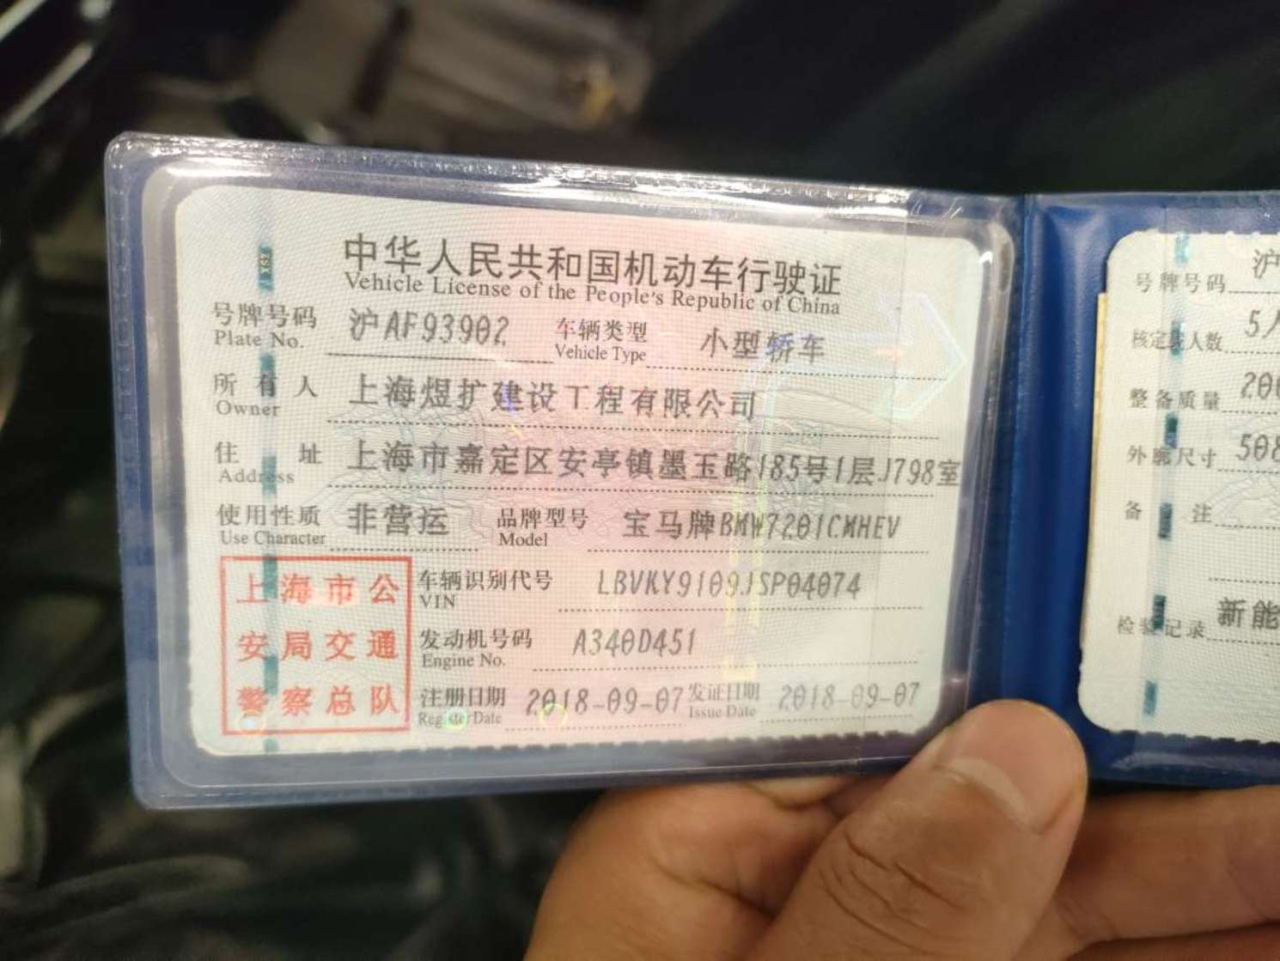 中华人民共和国机动车行驶证
Vehicle License of the People's Republic of China
号牌号码 沪AF93902 车辆类型 小型轿车
Plate No. Vehicle Type
所有人 上海煜扩建设工程有限公司
Owner
住址 上海市嘉定区安亭镇墨玉路185号1层J798室
Address
使用性质 非营运 品牌型号 宝马牌BMW7201CMHEV
Use Character Model
上海市公
安局交通
警察总队
车辆识别代号 LBVKY9109JSP04074
VIN
发动机号码 A340D451
Engine No.
注册日期 2018-09-07 发证日期 2018-09-07
Register Date Issue Date
号牌号码 沪
核定载人数 5人
整备质量 200
外廓尺寸 508
备注
检验记录 新能